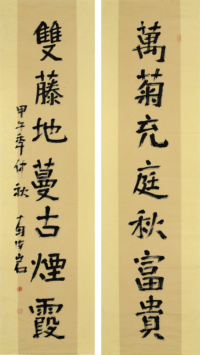 萬菊充庭秋富貴
雙藤地蔓古煙霞
甲午年仲秋